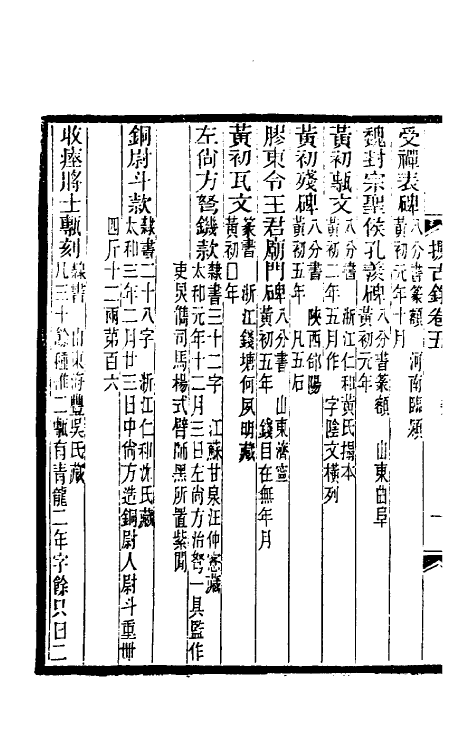 攈古錄卷五
一
受禪表碑 八分書篆額 河南臨潁
黃初元年十月
魏封宗聖侯孔羨碑 八分書篆額 山東曲阜
黃初元年
黃初甎文 八分書 浙江仁和黃氏搨本
黃初二年五月作 字陰文橫列
黃初殘碑 八分書 陝西郃陽
黃初五年 凡五石
膠東令王君廟門碑 八分書 山東濟寧
黃初五年 錢目在無年月
黃初瓦文 篆書 浙江錢塘何夙明藏
黃初囗年
左尙方弩鐖款 隸書三十二字 江蘇甘泉汪仲憲藏
太和元年十二月三日左尙方治弩一具監作
吏吳儁司馬楊式臂師黑所置紫聞
銅尉斗款 隸書二十八字 浙江仁和沈氏藏
太和三年二月廿三日中尙方造銅尉人尉斗重卌
四斤十二兩第百六
收瘞將士甎刻 隸書 山東海豐吳氏藏
凡三十餘種惟二甎有青龍二年字餘只日二